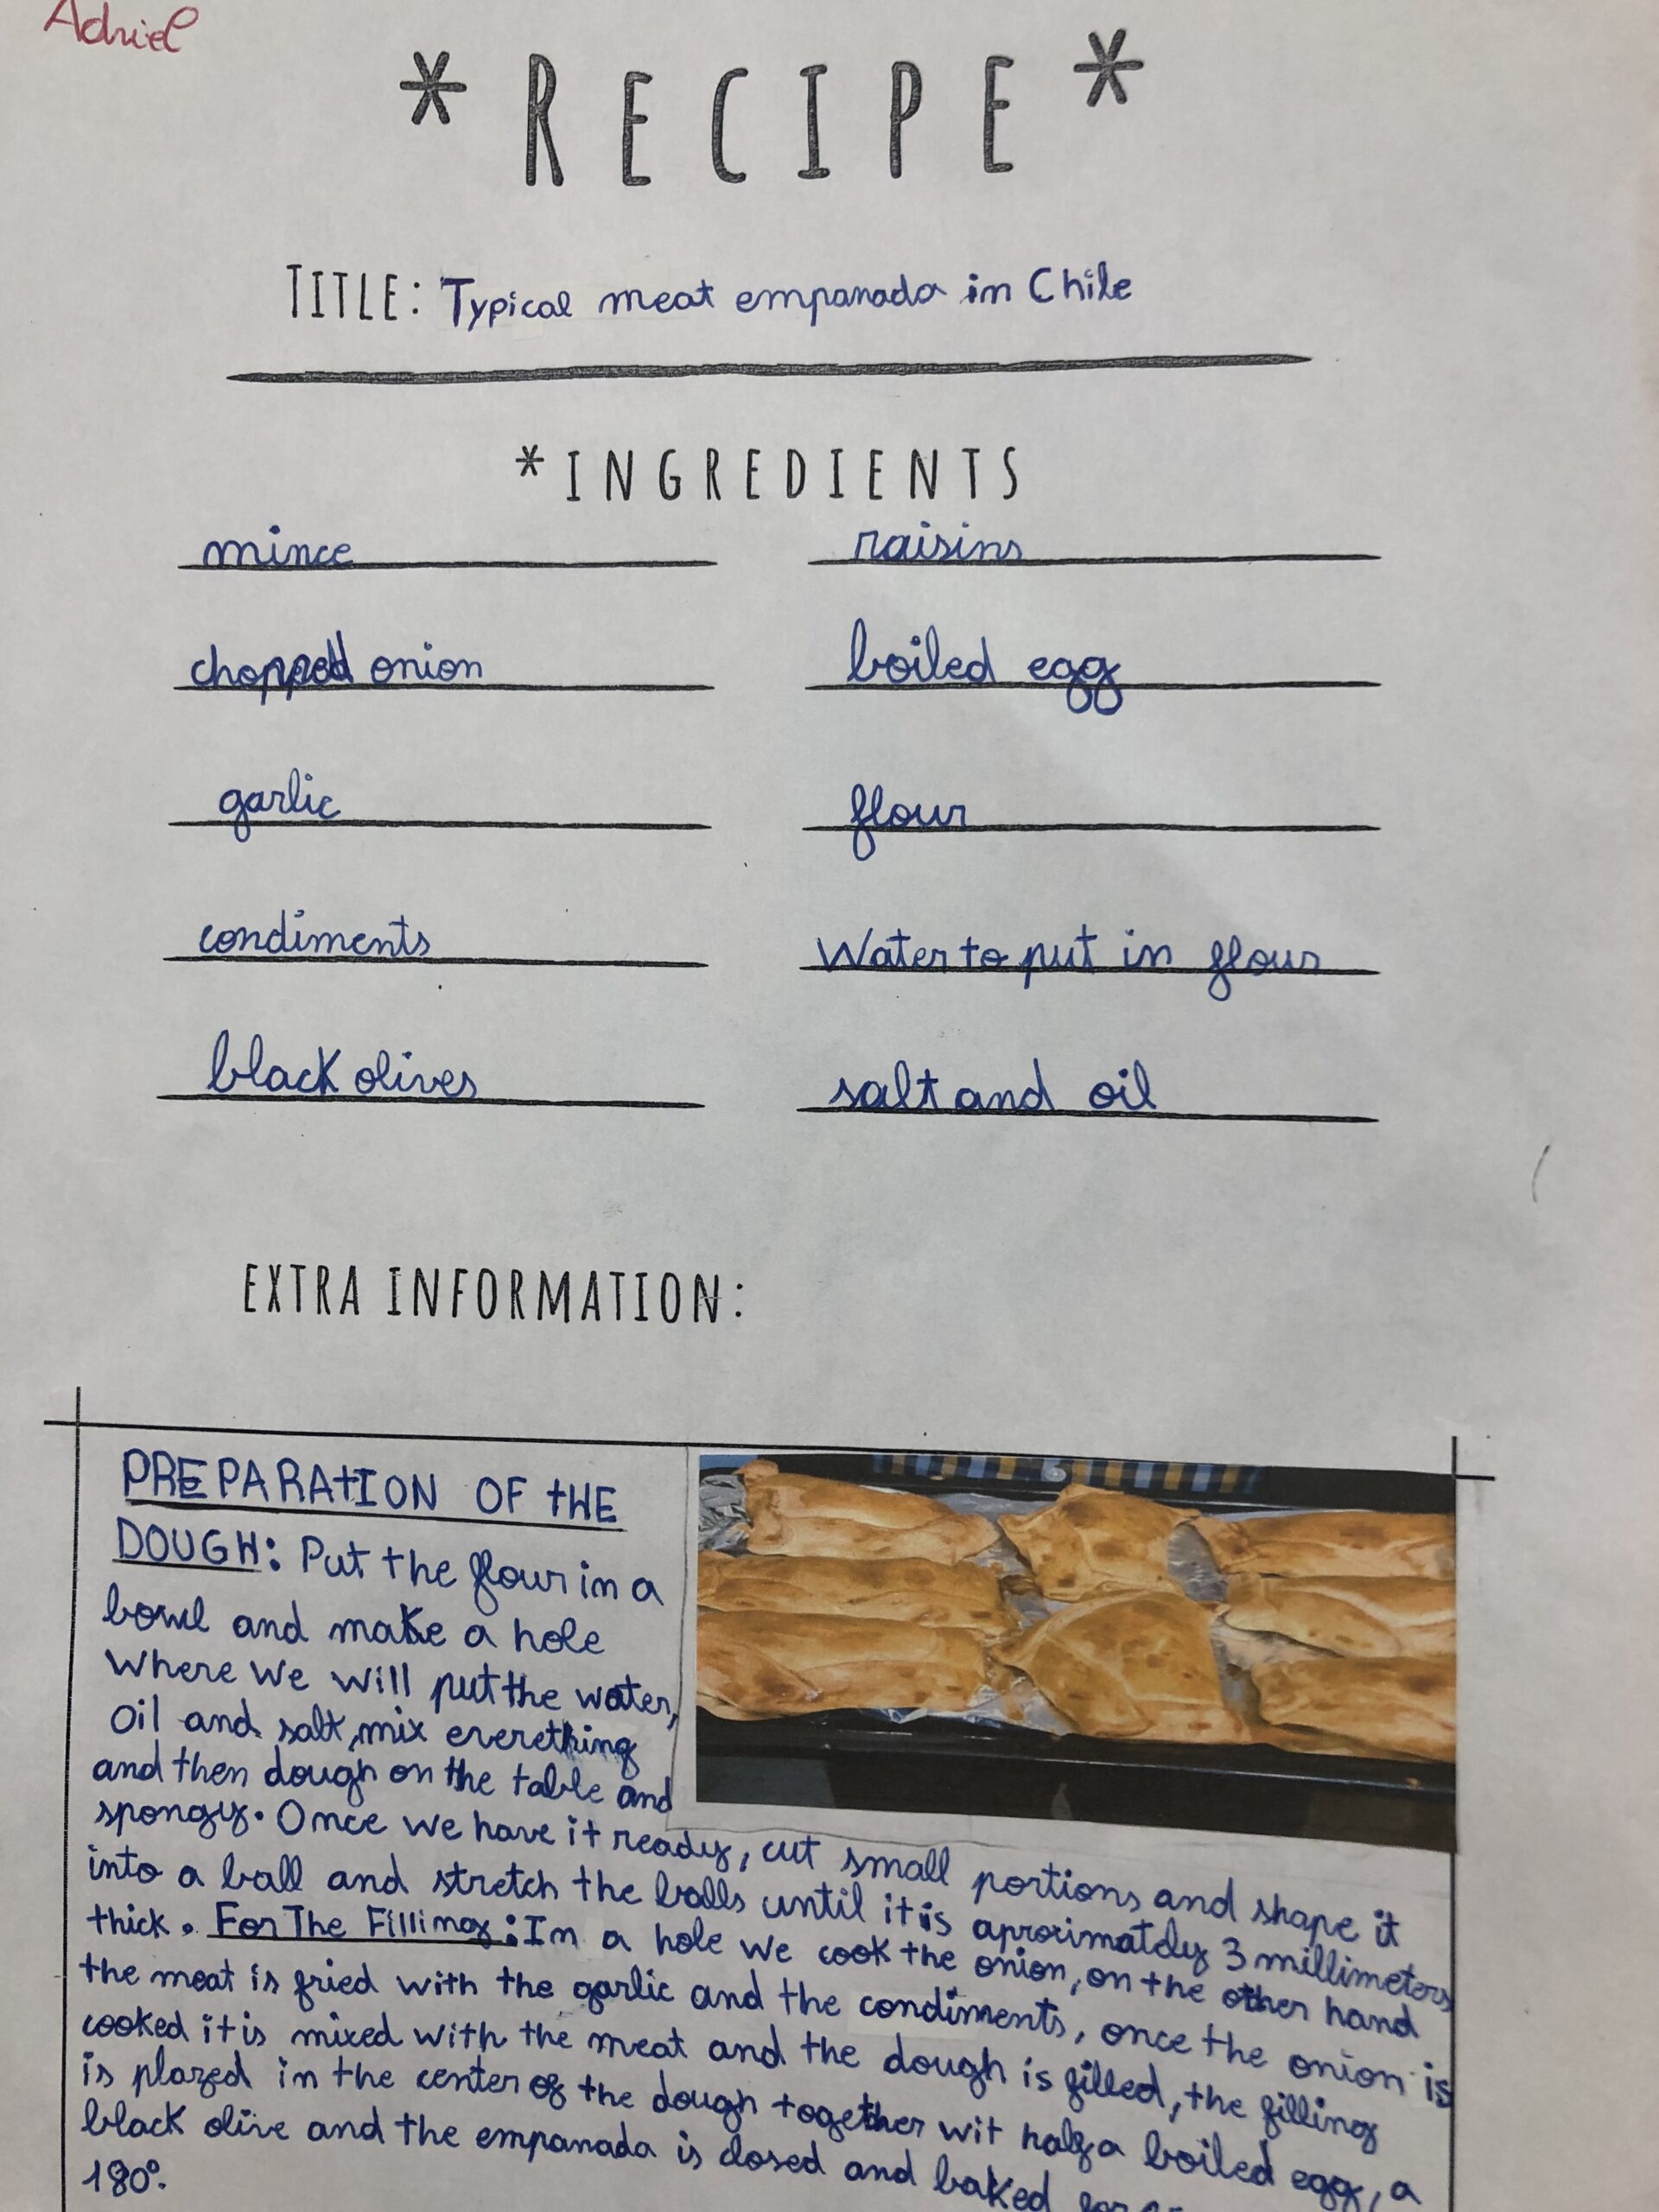 Adriel
*RECIPE*
TITLE: Typical meat empanada in Chile
*INGREDIENTS
mince
raisins
chopped onion
boiled egg
garlic
flour
condiments
Water to put in flour
black olives
salt and oil
EXTRA INFORMATION:
PREPARATION OF THE
DOUGH: Put the flour in a
bowl and make a hole
where we will put the water,
oil and salt, mix everething
and then dough on the table and
spongy. Once we have it ready, cut small portions and shape it
into a ball and stretch the balls until it is aproximately 3 millimeters
thick. For The Filling: In a hole we cook the onion, on the other hand
the meat is fried with the garlic and the condiments, once the onion is
cooked it is mixed with the meat and the dough is filled, the filling
is plazed in the center of the dough together wit half a boiled egg, a
black olive and the empanada is closed and baked
180°.